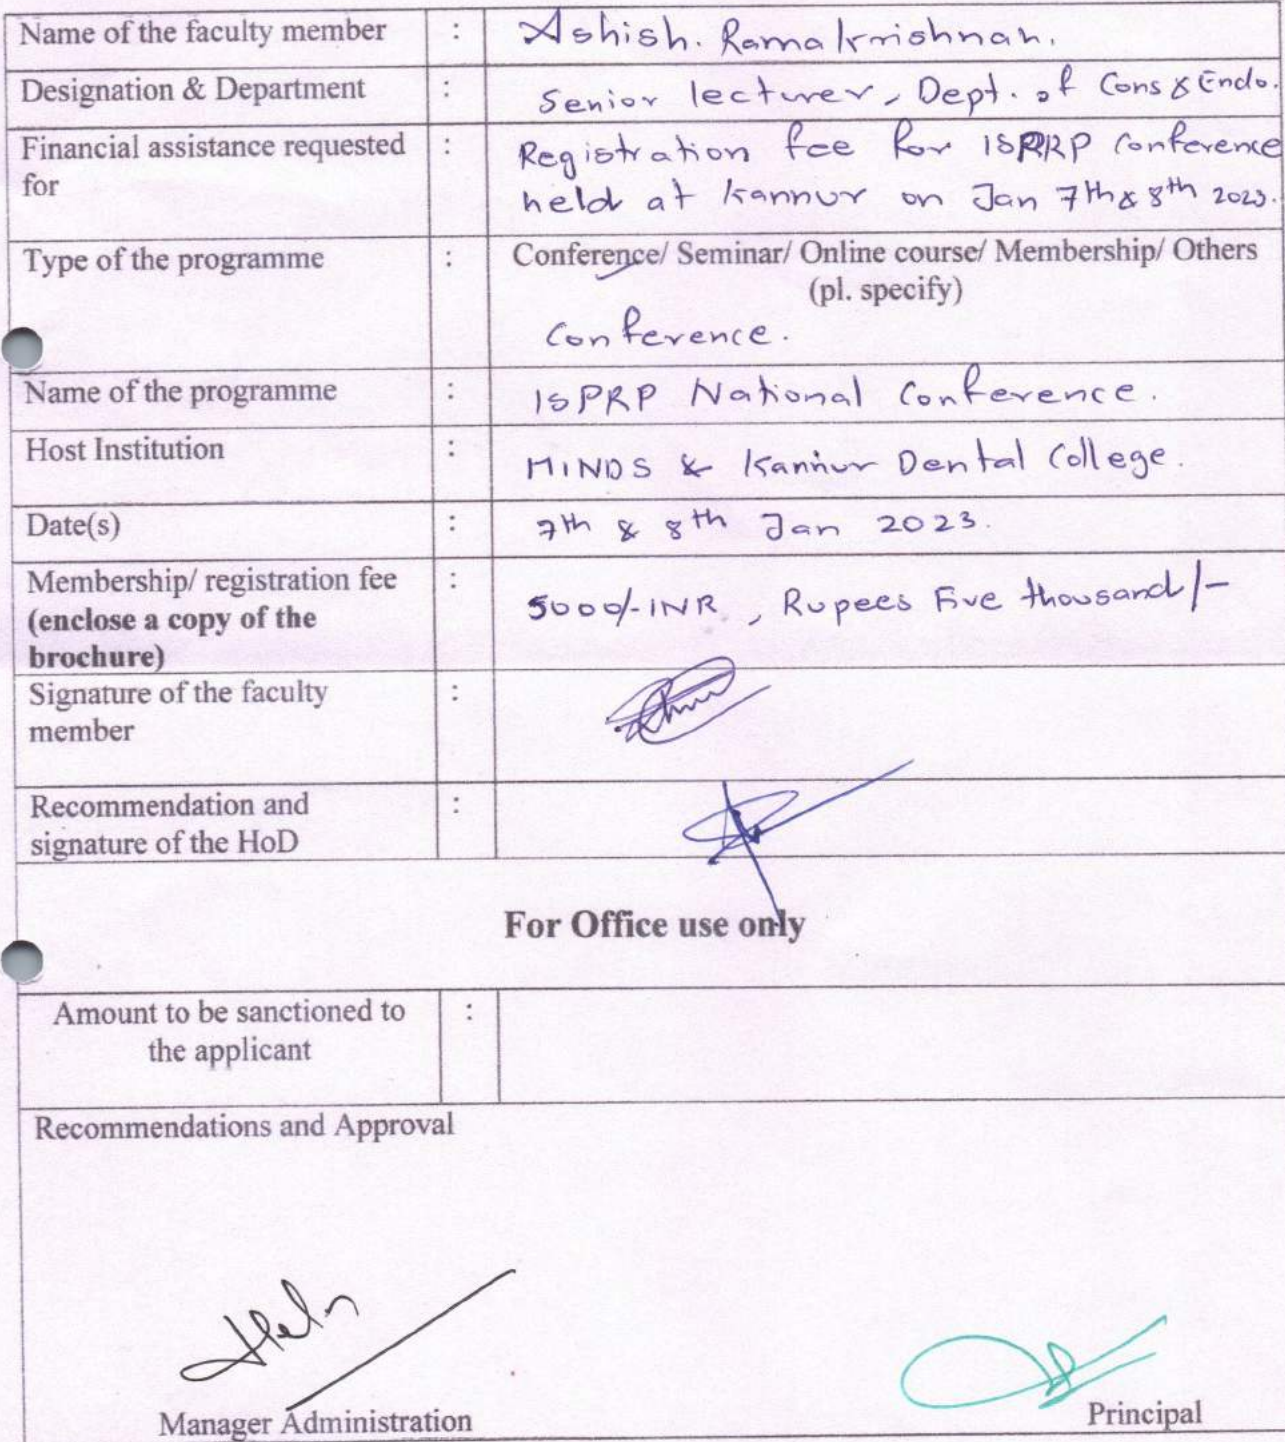 Name of the faculty member : Ashish. Ramakrishnan.
Designation & Department : Senior lecturer, Dept. of Cons & Endo.
Financial assistance requested : Registration fee for ISPRP Conference
for held at Kannur on Jan 7th & 8th 2023.
Type of the programme : Conference/ Seminar/ Online course/ Membership/ Others
(pl. specify)
Conference.
Name of the programme : ISPRP National Conference.
Host Institution : MINDS & Kannur Dental College.
Date(s) : 7th & 8th Jan 2023.
Membership/ registration fee : 5000/-INR, Rupees Five thousand/-
(enclose a copy of the
brochure)
Signature of the faculty :
member
Recommendation and :
signature of the HoD
For Office use only
Amount to be sanctioned to :
the applicant
Recommendations and Approval
Manager Administration Principal